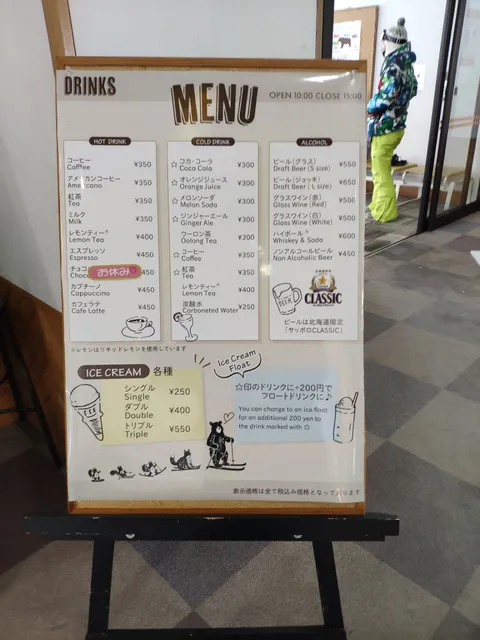 DRINKS
MENU
OPEN 10:00 CLOSE 15:00
HOT DRINK
コーヒー
Coffee ¥350
アメリカンコーヒー
Americano ¥350
紅茶
Tea ¥350
ミルク
Milk ¥350
レモンティー®
Lemon Tea ¥400
エスプレッソ
Espresso ¥450
チョコ お休み 450
Choc
カプチーノ
Cappuccino ¥450
カフェラテ
Cafe Latte ¥450
COLD DRINK
☆ コカ・コーラ
Coca Cola ¥300
☆ オレンジジュース
Orange Juice ¥300
☆ メロンソーダ
Melon Soda ¥300
☆ ジンジャーエール
Ginger Ale ¥300
ウーロン茶
Oolong Tea ¥300
☆ コーヒー
Coffee ¥350
☆ 紅茶
Tea ¥350
レモンティー®
Lemon Tea ¥400
炭酸水
Carboneted Water ¥250
ALCOHOL
ビール(グラス)
Draft Beer (S size) ¥550
ビール(ジョッキ)
Draft Beer (L size) ¥650
グラスワイン(赤)
Glass Wine (Red) ¥500
グラスワイン(白)
Glass Wine (White) ¥500
ハイボール®
Whiskey & Soda ¥600
ノンアルコールビール
Non Alcoholic Beer ¥450
BEER
CLASSIC
ビールは北海道限定
「サッポロCLASSIC」
※レモンはリキッドレモンを使用しています
ICE CREAM 各種
シングル
Single ¥250
ダブル
Double ¥400
トリプル
Triple ¥550
ICE
Ice Cream
Float
☆印のドリンクに+200円で
フロートドリンクに♪
You can change to an ice float
for an additional 200 yen to
the drink marked with ☆
表示価格は全て税込み価格となっております